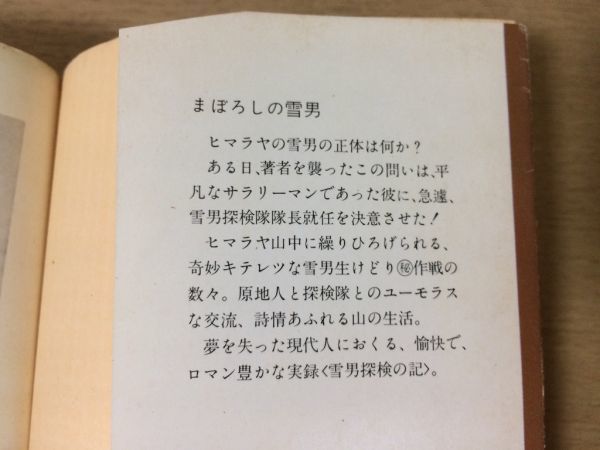 まぼろしの雪男
ヒマラヤの雪男の正体は何か？
ある日、著者を襲ったこの問いは、平
凡なサラリーマンであった彼に、急遽、
雪男探検隊隊長就任を決意させた！
ヒマラヤ山中に繰りひろげられる、
奇妙キテレツな雪男生けどり㊙作戦の
数々。原地人と探検隊とのユーモラス
な交流、詩情あふれる山の生活。
夢を失った現代人におくる、愉快で、
ロマン豊かな実録〈雪男探検の記〉。